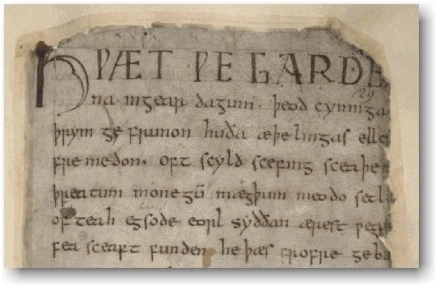 HǷÆT ǷE GARDE
na in gear dagum · þeod cyninga
þrym ge frunon huða æþelingas elle
fremedon. oft scyld scefing sceaþe
þreatum monegū mægþum meodo setla
of teah egsode eorl syððan ærest
fea sceaft funden he þæs frofre geba